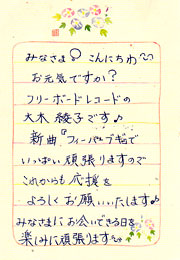 みなさま♪ こんにちわ〜
お元気ですか？
フリーボードレコードの
大木 綾子です♪
新曲『フィーバルブギ』で
いっぱい頑張りますので
これからも応援を
よろしくお願いいたします♪
みなさまにお会いできる日を
楽しみに頑張ります〜